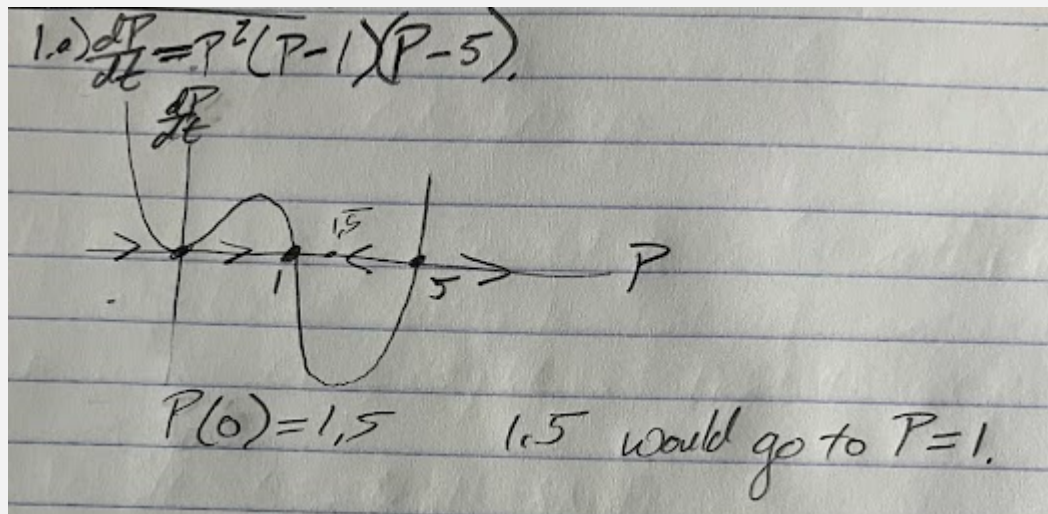 1.a) dP/dt = P²(P-1)(P-5).
dP/dt
1,5
1
5
P
P(0)=1,5 1.5 would go to P=1.